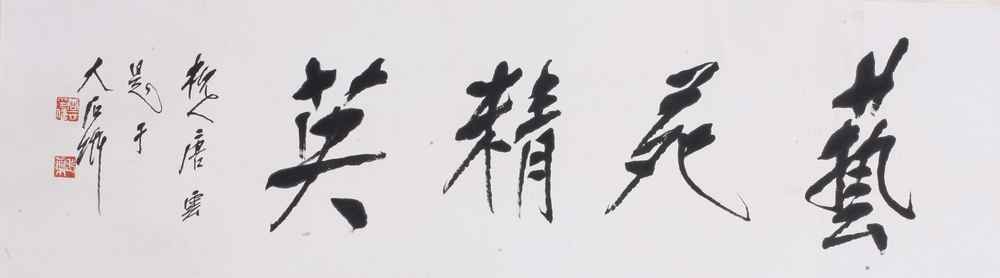 藝苑精英
杭人唐雲
題于
大石齋